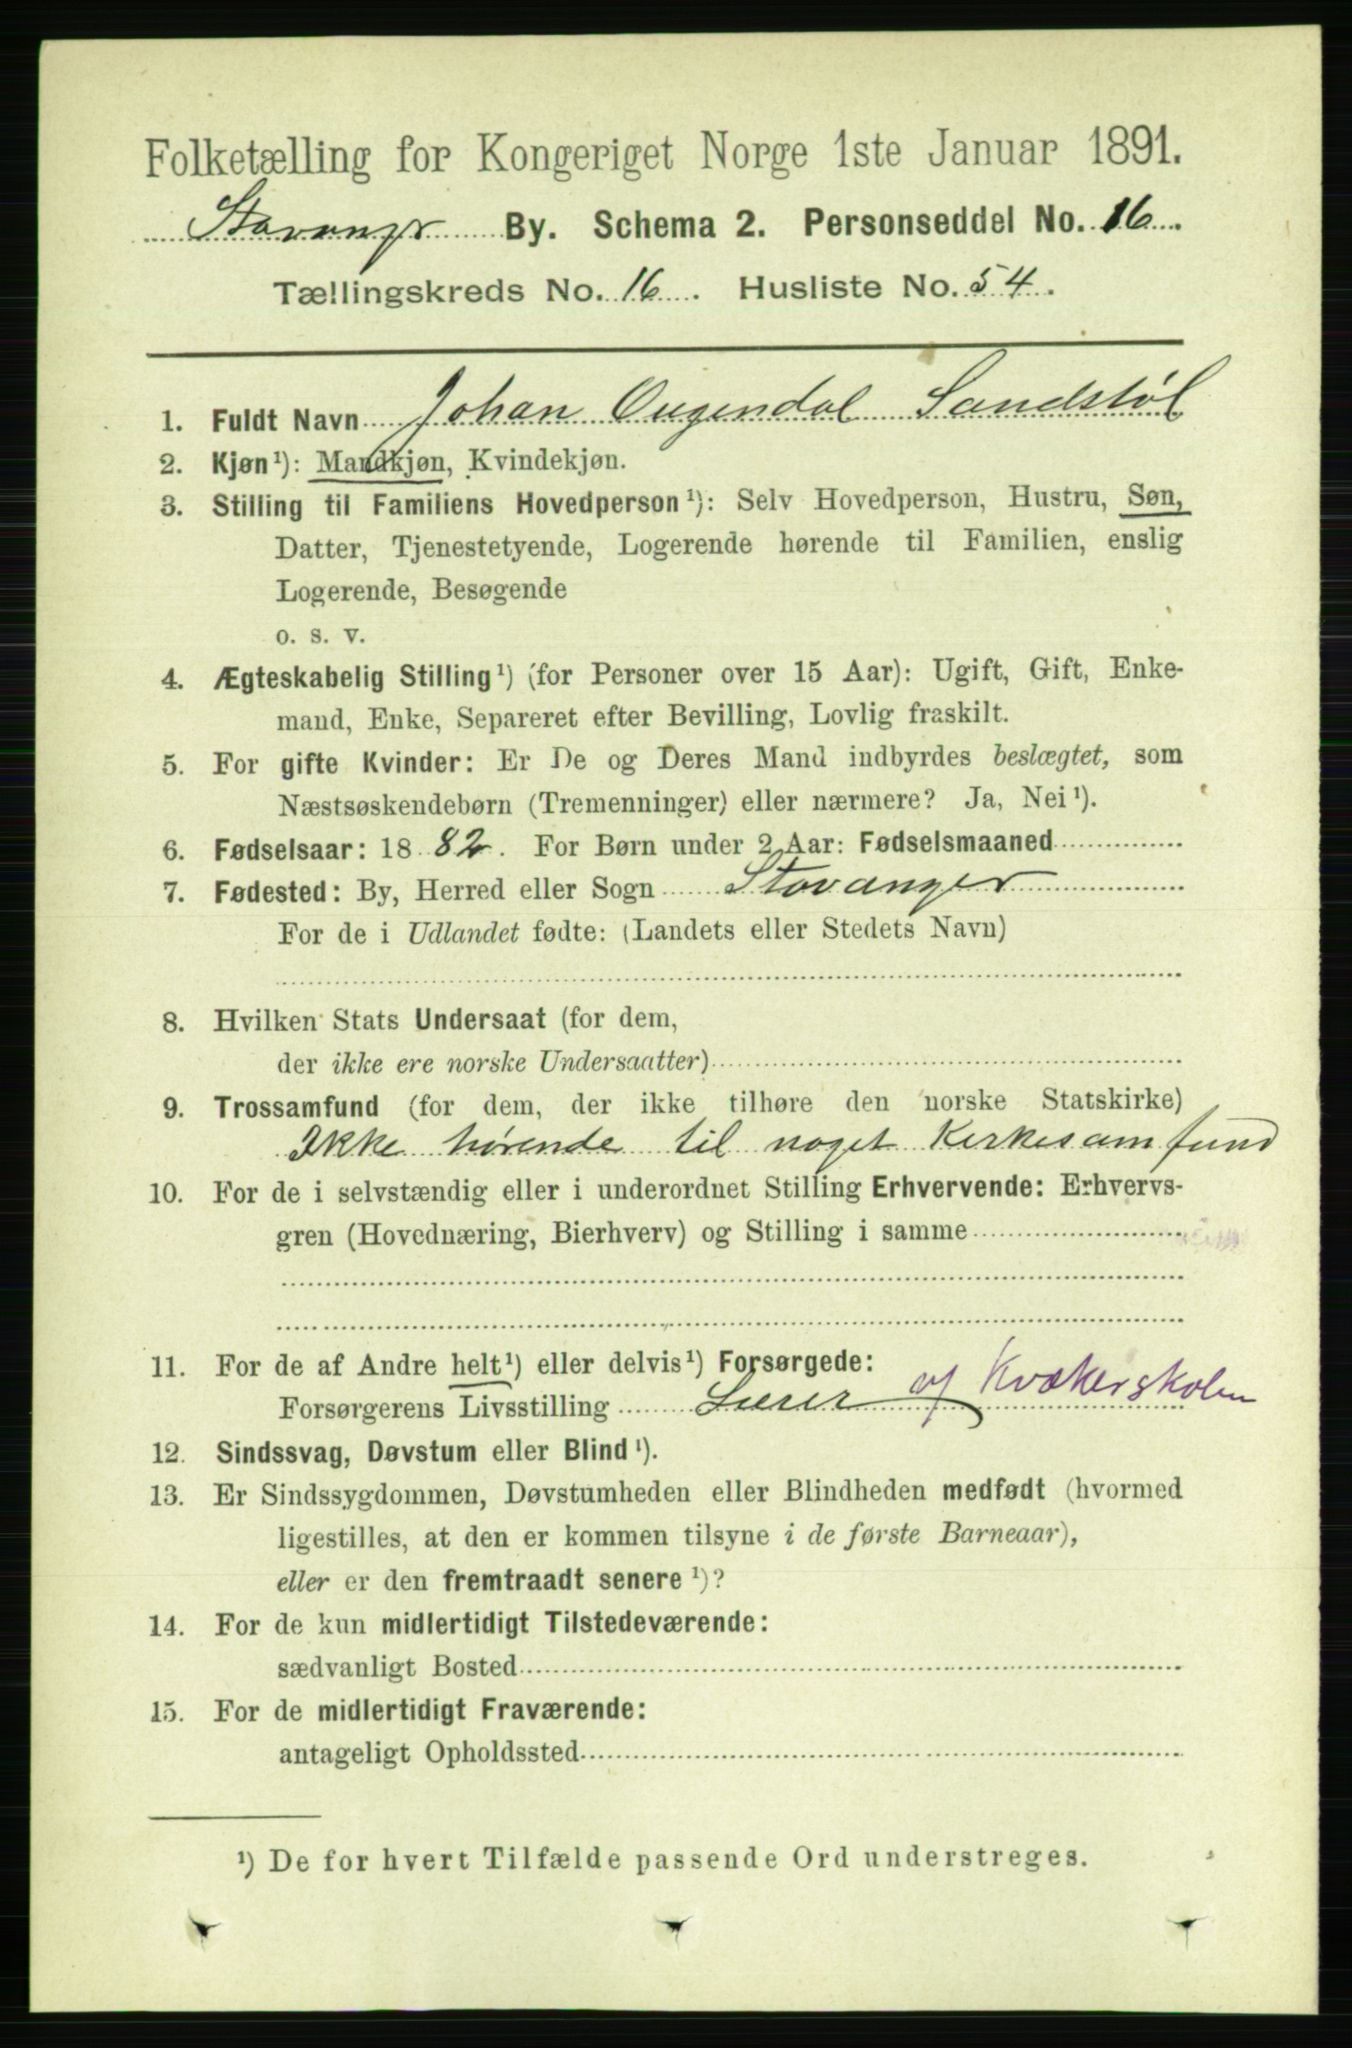 Folketælling for Kongeriget Norge 1ste Januar 1891.
Stavanger By. Schema 2. Personseddel No. 16.
Tællingskreds No. 16. Husliste No. 54.
1. Fuldt Navn Johan Sandstøl
2. Kjøn¹): Mandkjøn, Kvindekjøn.
3. Stilling til Familiens Hovedperson¹): Selv Hovedperson, Hustru, Søn,
Datter, Tjenestetyende, Logerende hørende til Familien, enslig
Logerende, Besøgende
o. s. v.
4. Ægteskabelig Stilling¹) (for Personer over 15 Aar): Ugift, Gift, Enke-
mand, Enke, Separeret efter Bevilling, Lovlig fraskilt.
5. For gifte Kvinder: Er De og Deres Mand indbyrdes beslægtet, som
Næstsøskendebørn (Tremenninger) eller nærmere? Ja, Nei¹).
6. Fødselsaar: 1882. For Børn under 2 Aar: Fødselsmaaned
7. Fødested: By, Herred eller Sogn Stavanger
For de i Udlandet fødte: (Landets eller Stedets Navn)
8. Hvilken Stats Undersaat (for dem,
der ikke ere norske Undersaatter)
9. Trossamfund (for dem, der ikke tilhøre den norske Statskirke)
Ikke hørende til noget Kirkesamfund
10. For de i selvstændig eller i underordnet Stilling Erhvervende: Erhvervs-
gren (Hovednæring, Bierhverv) og Stilling i samme
11. For de af Andre helt¹) eller delvis¹) Forsørgede:
Forsørgerens Livsstilling Lærer af Kvækerskolen
12. Sindssvag, Døvstum eller Blind¹).
13. Er Sindssygdommen, Døvstumheden eller Blindheden medfødt (hvormed
ligestilles, at den er kommen tilsyne i de første Barneaar),
eller er den fremtraadt senere¹)?
14. For de kun midlertidigt Tilstedeværende:
sædvanligt Bosted
15. For de midlertidigt Fraværende:
antageligt Opholdssted
¹) De for hvert Tilfælde passende Ord understreges.